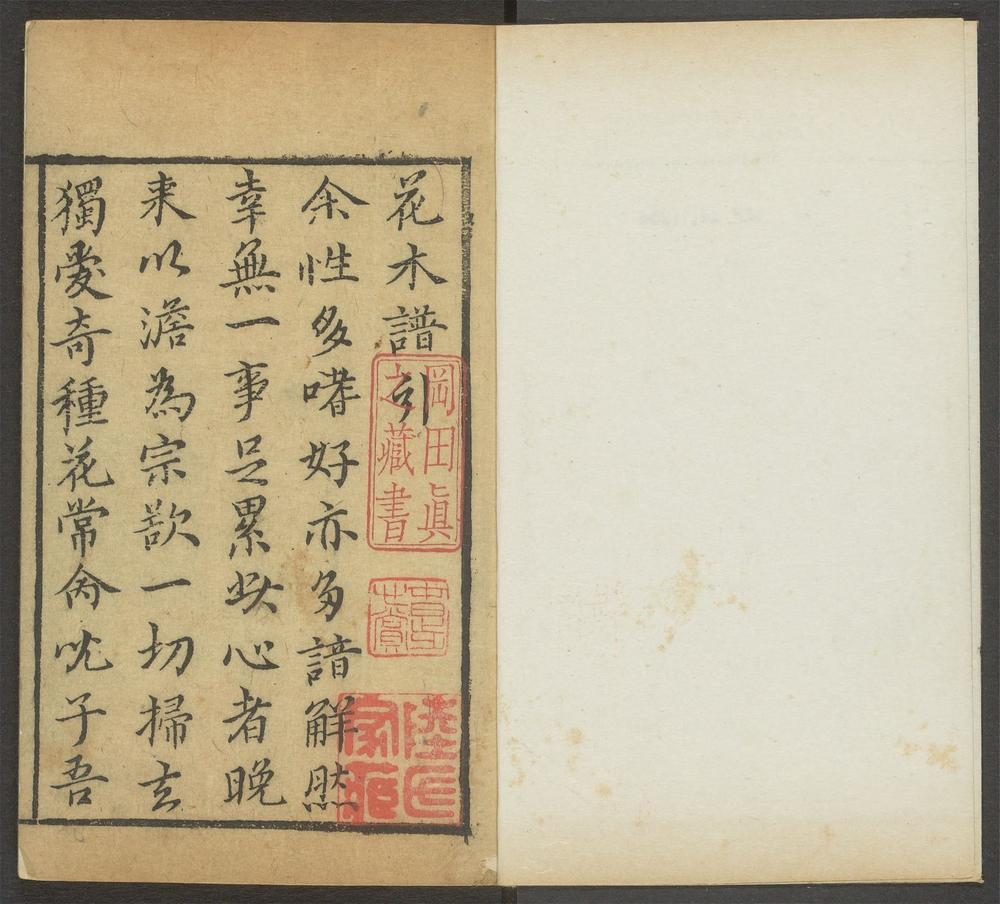 花木譜引
余性多嗜好亦多諳解然
幸無一事足累此心者晚
来以澹為宗欲一切掃去
獨愛奇種花常為吮子吾
岡田眞
之藏書